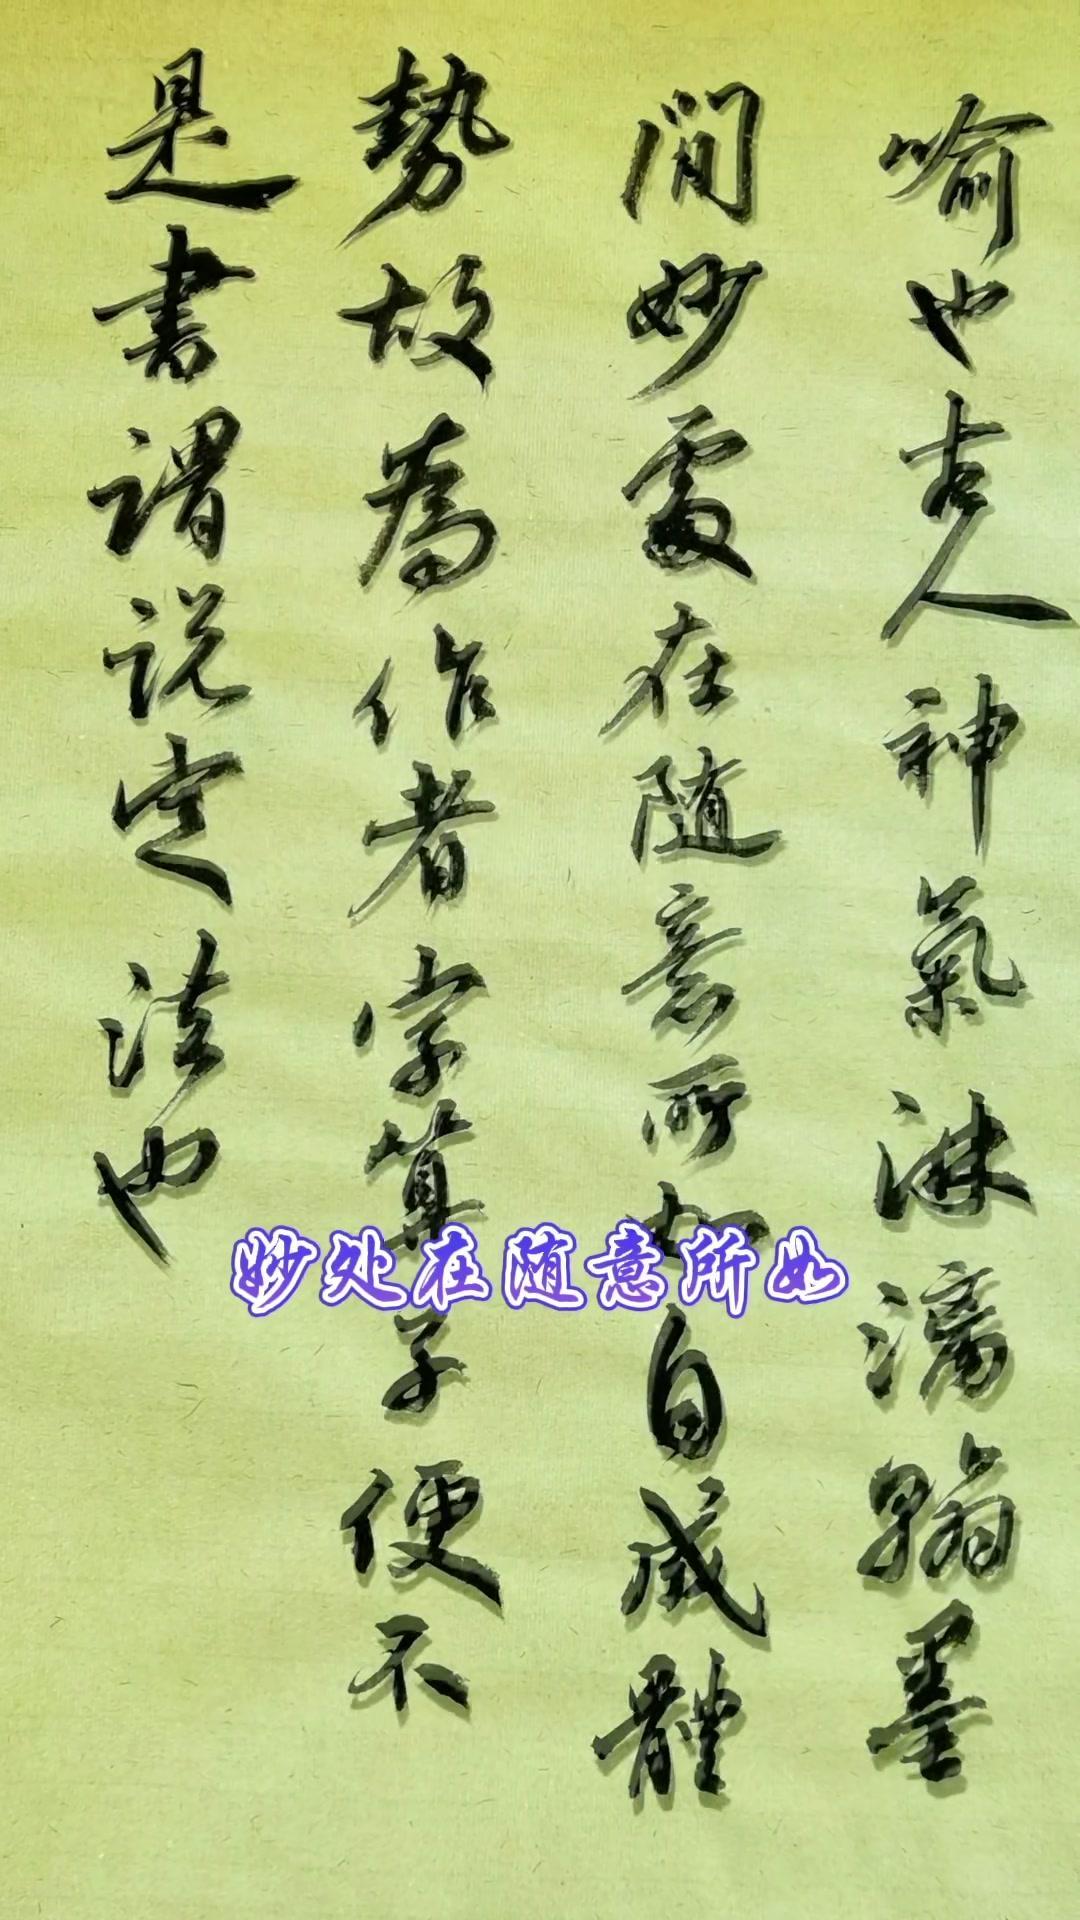 喻也古人神氣淋漓翰墨
間妙處在随意所如自成體
勢故為作者字算子便不
是書謂説定法也
妙处在随意所如